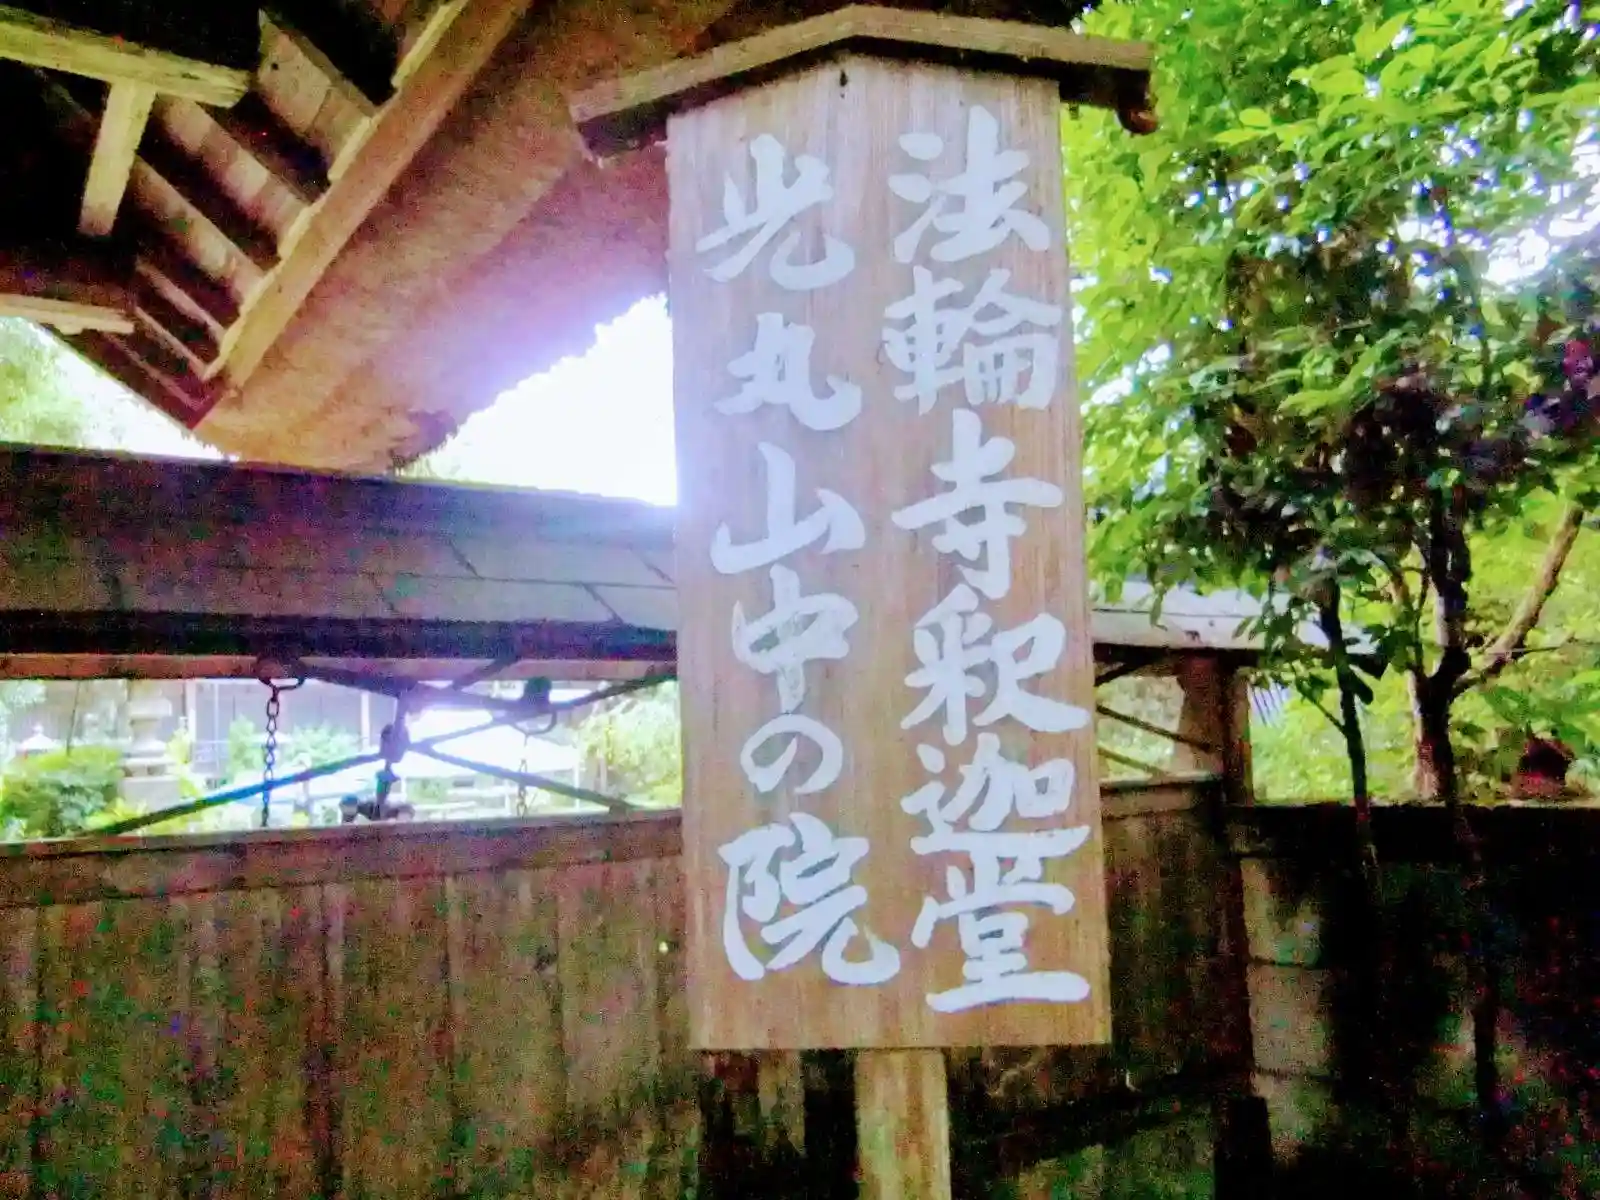 法輪寺釈迦堂
光丸山中の院